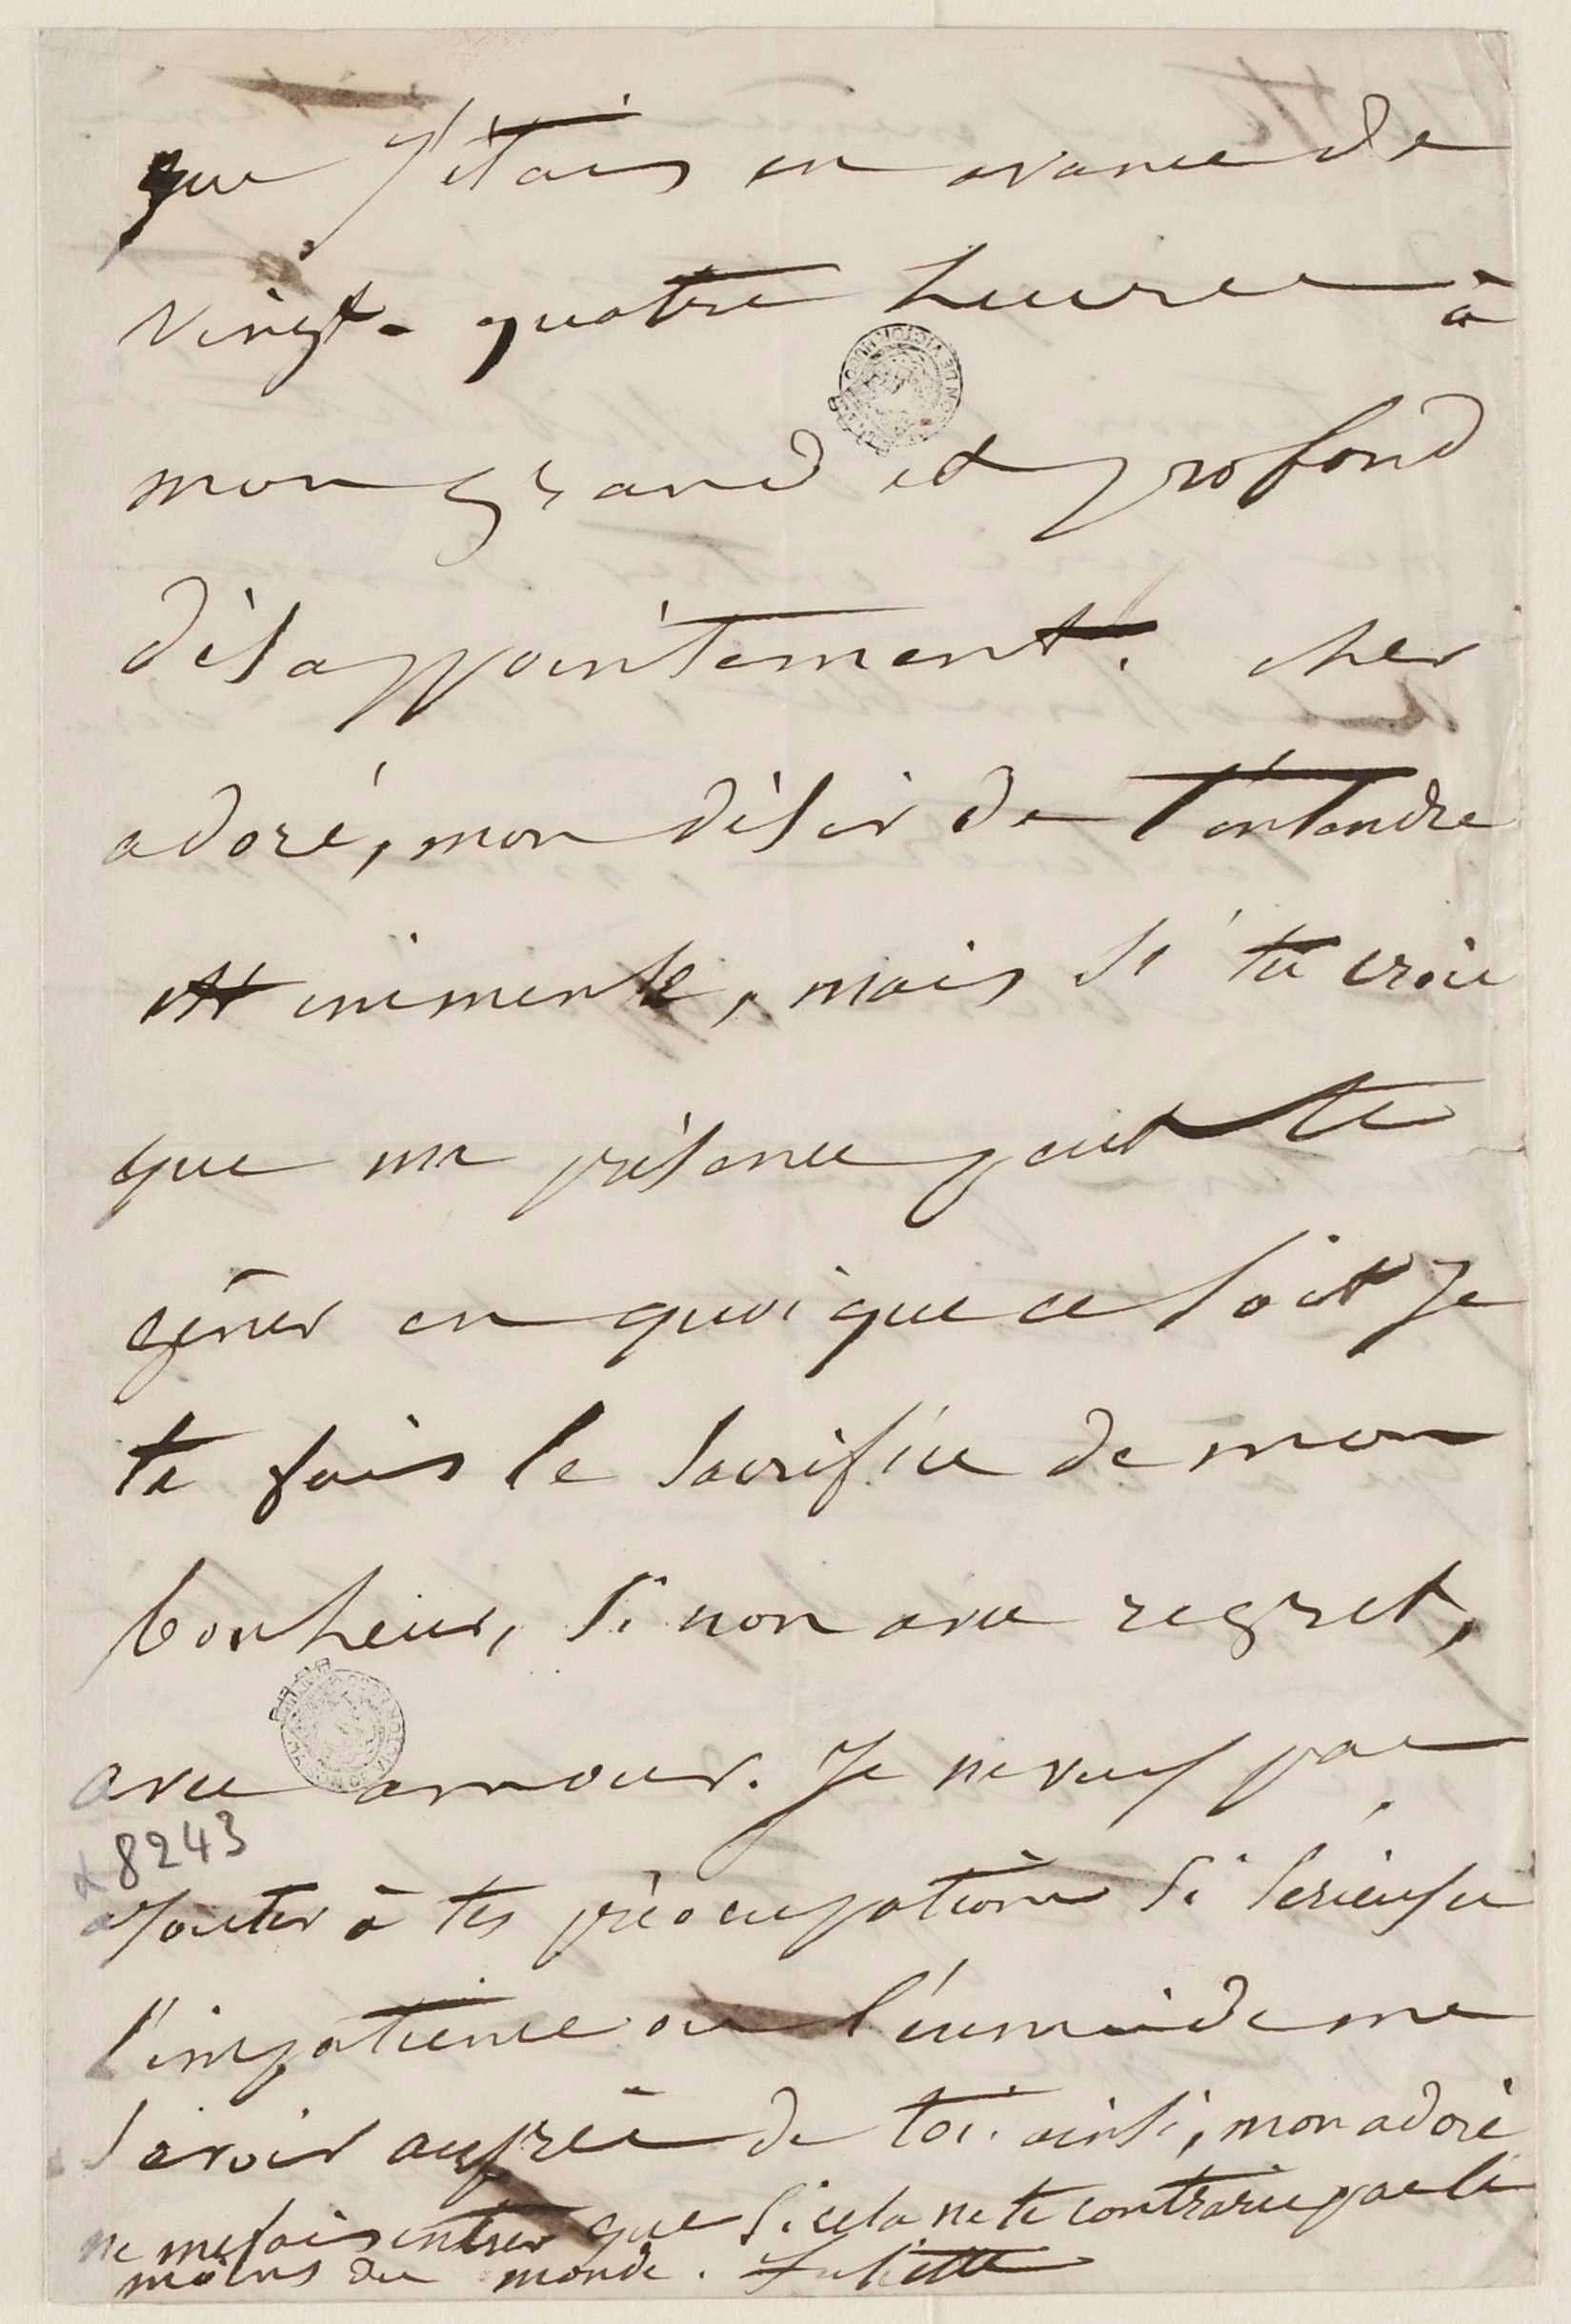 que j'étais en avance de
vingt-quatre heures à
mon grand et profond
désappointement. cher
adoré, mon désir de t'entendre
est immense, mais si tu crois
que ma présence peut te
gêner en quoi que ce soit je
te fais le sacrifice de mon
bonheur, si non avec regret,
avec amour. Je ne veux pas
8243
ajouter à tes préocupations si sérieuses
l'impatience ou l'ennui de me
savoir auprès de toi. ainsi, mon adoré
ne me fais entrer que si cela ne te contrarie pas le
moins du monde. Juliette